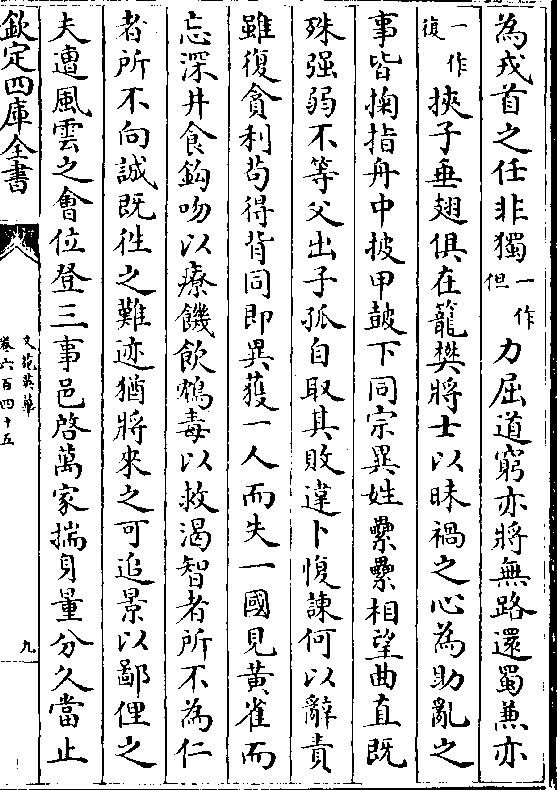 為戎首之任非獨一作但力屈道窮亦將無路還蜀兼亦
一作復挾子垂翅俱在籠樊將士以昧禍之心為助亂之
事皆掬指舟中披甲皷下同宗異姓纍纍相望曲直既
殊强弱不等父出子孤自取其敗違卜愎諫何以辭責
雖復貪利茍得背同即異獲一人而失一國見黃雀而
忘深井食鈎吻以療饑飲鴆毒以救渴智者所不為仁
者所不向誠既徃之難迹猶將來之可追景以鄙俚之
夫遭風雲之會位登三事邑啓萬家揣身量分久當止
欽定四庫全書
文苑英華
卷六百四十五
九